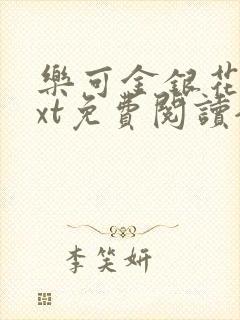 樂可金銀花
xt免費閱讀
李笑妍